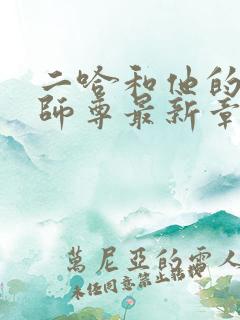 二哈和他的
師尊最新章
萬尼亞的雷人
未经同意禁止转载